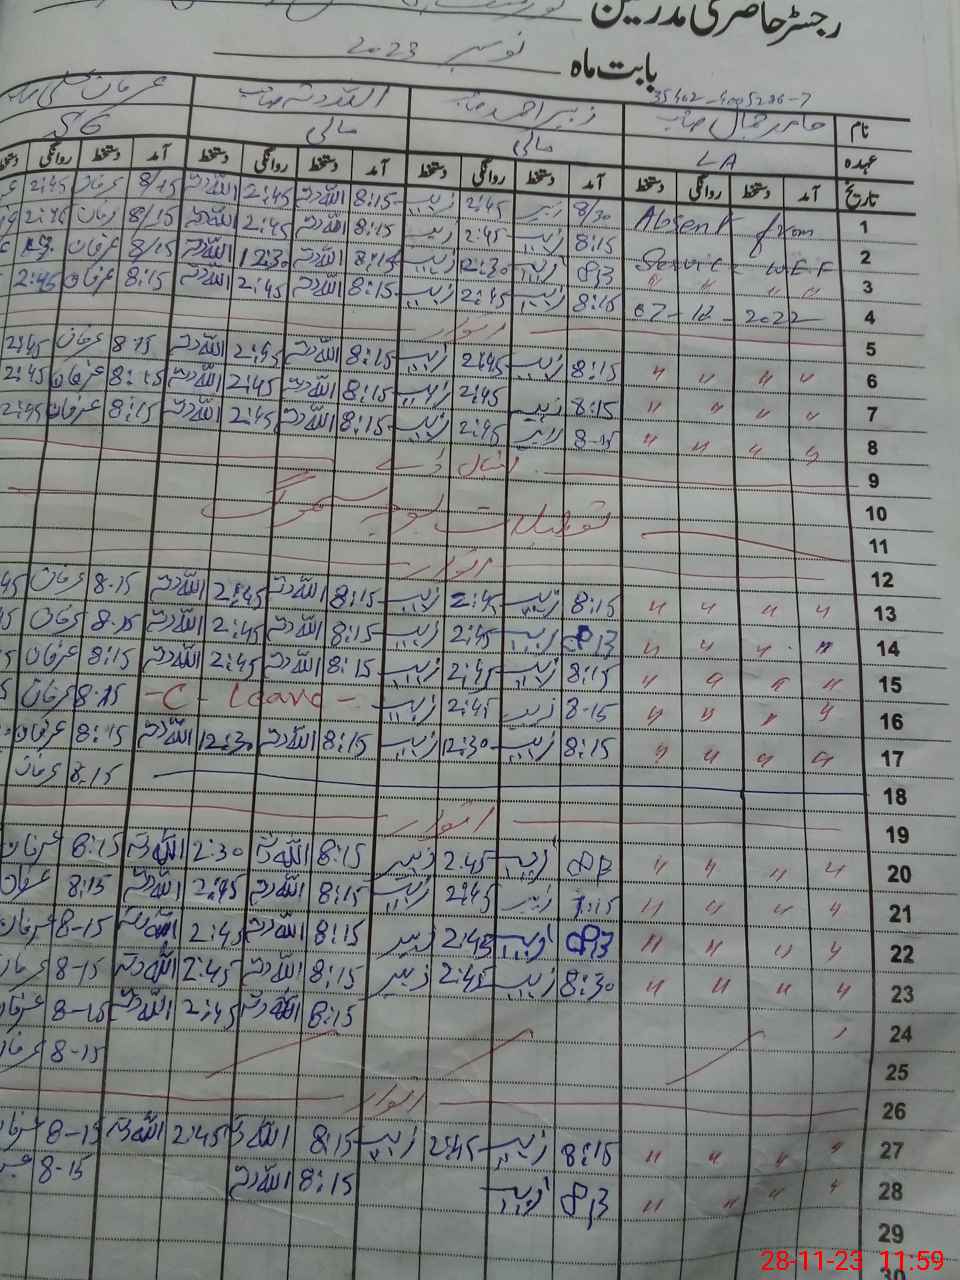 رجسٹر حاضری مدرسین
بابت ماہ نومبر 2023
35402-4005286-7
نام زبیر احمد صاحب اللہ دتہ صاحب عرفان
عہدہ LA مالی مالی SG
تاریخ آمد دستخط روانگی دستخط آمد دستخط روانگی دستخط آمد دستخط روانگی دستخط آمد دستخط روانگی
1 Absent from 8/30 زبیر 2:45 زبیر 8:15 اللہ دتہ 2:45 اللہ دتہ 8/15 عرفان 2:45
2 Service W.E.F 8:15 زبیر 2:45 زبیر 8:15 اللہ دتہ 2:45 اللہ دتہ 8/15 عرفان
3 " " " " زبیر 12:30 زبیر 8:15 اللہ دتہ 12:30 اللہ دتہ 8/15 عرفان
4 2022 8:15 زبیر 2:45 زبیر 8:15 اللہ دتہ 2:45 اللہ دتہ 8:15 عرفان 2:45
5 اتوار
6 " " " " 8:15 زبیر 2:45 زبیر 8:15 اللہ دتہ 2:45 اللہ دتہ 8:15 عرفان 2:45
7 " " " " 8:15 زبیر 2:45 زبیر 8:15 اللہ دتہ 2:45 اللہ دتہ 8:15 عرفان 2:45
8 " " " " 8-15 زبیر 2:45 زبیر 8:15 اللہ دتہ 2:45 اللہ دتہ 8:15 عرفان 2:45
9 اقبال ڈے
10 تعطیلات بوجہ سموگ
11
12 اتوار
13 " " " " 8:15 زبیر 2:45 زبیر 8:15 اللہ دتہ 2:45 اللہ دتہ 8-15 عرفان
14 " " " " زبیر 2:45 زبیر 8:15 اللہ دتہ 2:45 اللہ دتہ 8-15 عرفان
15 " " " " 8:15 زبیر 2:45 زبیر 8:15 اللہ دتہ 2:45 اللہ دتہ 8:15 عرفان
16 " " " " 8-15 زبیر 2:45 زبیر - C - Leave - 8:15 عرفان
17 " " " " 8:15 زبیر 12:30 زبیر 8:15 اللہ دتہ 12:30 اللہ دتہ 8:15 عرفان
18 8-15 عرفان
19 اتوار
20 " " " " زبیر 2:45 زبیر 8:15 اللہ دتہ 2:30 اللہ دتہ 8:15 عرفان
21 " " " " زبیر 2:45 زبیر 8:15 اللہ دتہ 2:45 اللہ دتہ 8:15 عرفان
22 " " " " زبیر 2:45 زبیر 8:15 اللہ دتہ 2:45 اللہ دتہ 8-15 عرفان
23 " " " " 8:30 زبیر 2:45 زبیر 8:15 اللہ دتہ 2:45 اللہ دتہ 8-15 عرفان
24 8:15 اللہ دتہ 2:45 اللہ دتہ 8-15 عرفان
25 8-15 عرفان
26 اتوار
27 " " " " 8:15 زبیر 2:45 زبیر 8:15 اللہ دتہ 2:45 اللہ دتہ 8-15 عرفان
28 " " " " زبیر 8:15 اللہ دتہ 8-15
29
30
28-11-23 11:59